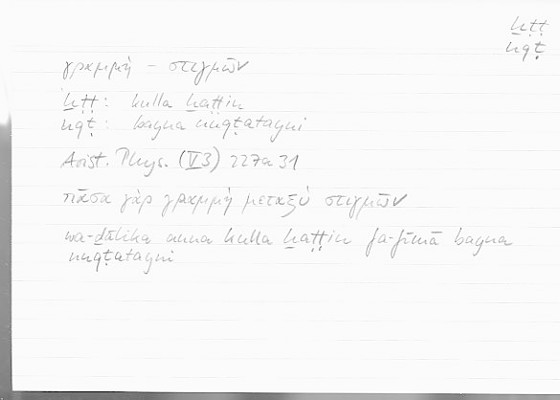 ḫṭṭ
nqṭ
γραμμή – στιγμῶν
ḫṭṭ: kulla ḫaṭṭin
nqṭ: bayna nuqṭatayni
Arist. Phys. (VI3) 227a31
πᾶσα γὰρ γραμμὴ μεταξὺ στιγμῶν
wa-ḏālika anna kulla ḫaṭṭin fa-fīmā bayna
nuqṭatayni